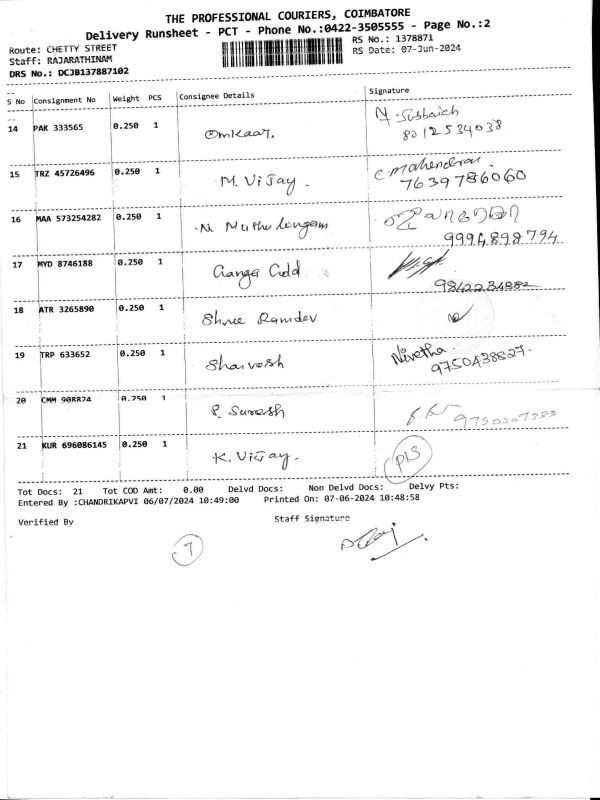 THE PROFESSIONAL COURIERS, COIMBATORE
Delivery Runsheet - PCT - Phone No.:0422-3505555 - Page No.:2
Route: CHETTY STREET RS No.: 1378871
Staff: RAJARATHINAM RS Date: 07-Jun-2024
DRS No.: DCJB137887102
S No Consignment No Weight PCS Consignee Details Signature
14 PAK 333565 0.250 1 Omkaar. N. Subbaiah
8012534038
15 TRZ 45726496 0.250 1 M. Vijay. C. Mahendran.
7639786060
16 MAA 573254282 0.250 1 N. Muthu lingam
9994898794
17 MYD 8746188 0.250 1 Ganga Cudd
9842234882
18 ATR 3265890 0.250 1 Shree Ramdev
19 TRP 633652 0.250 1 Sharvesh Nivetha.
9750438827.
20 CMM 908824 0.250 1 P. Suresh
21 KUR 696086145 0.250 1 K. Vijay.
Tot Docs: 21 Tot COD Amt: 0.00 Delvd Docs: Non Delvd Docs: Delvy Pts:
Entered By :CHANDRIKAPVI 06/07/2024 10:49:00 Printed On: 07-06-2024 10:48:58
Verified By Staff Signature
7